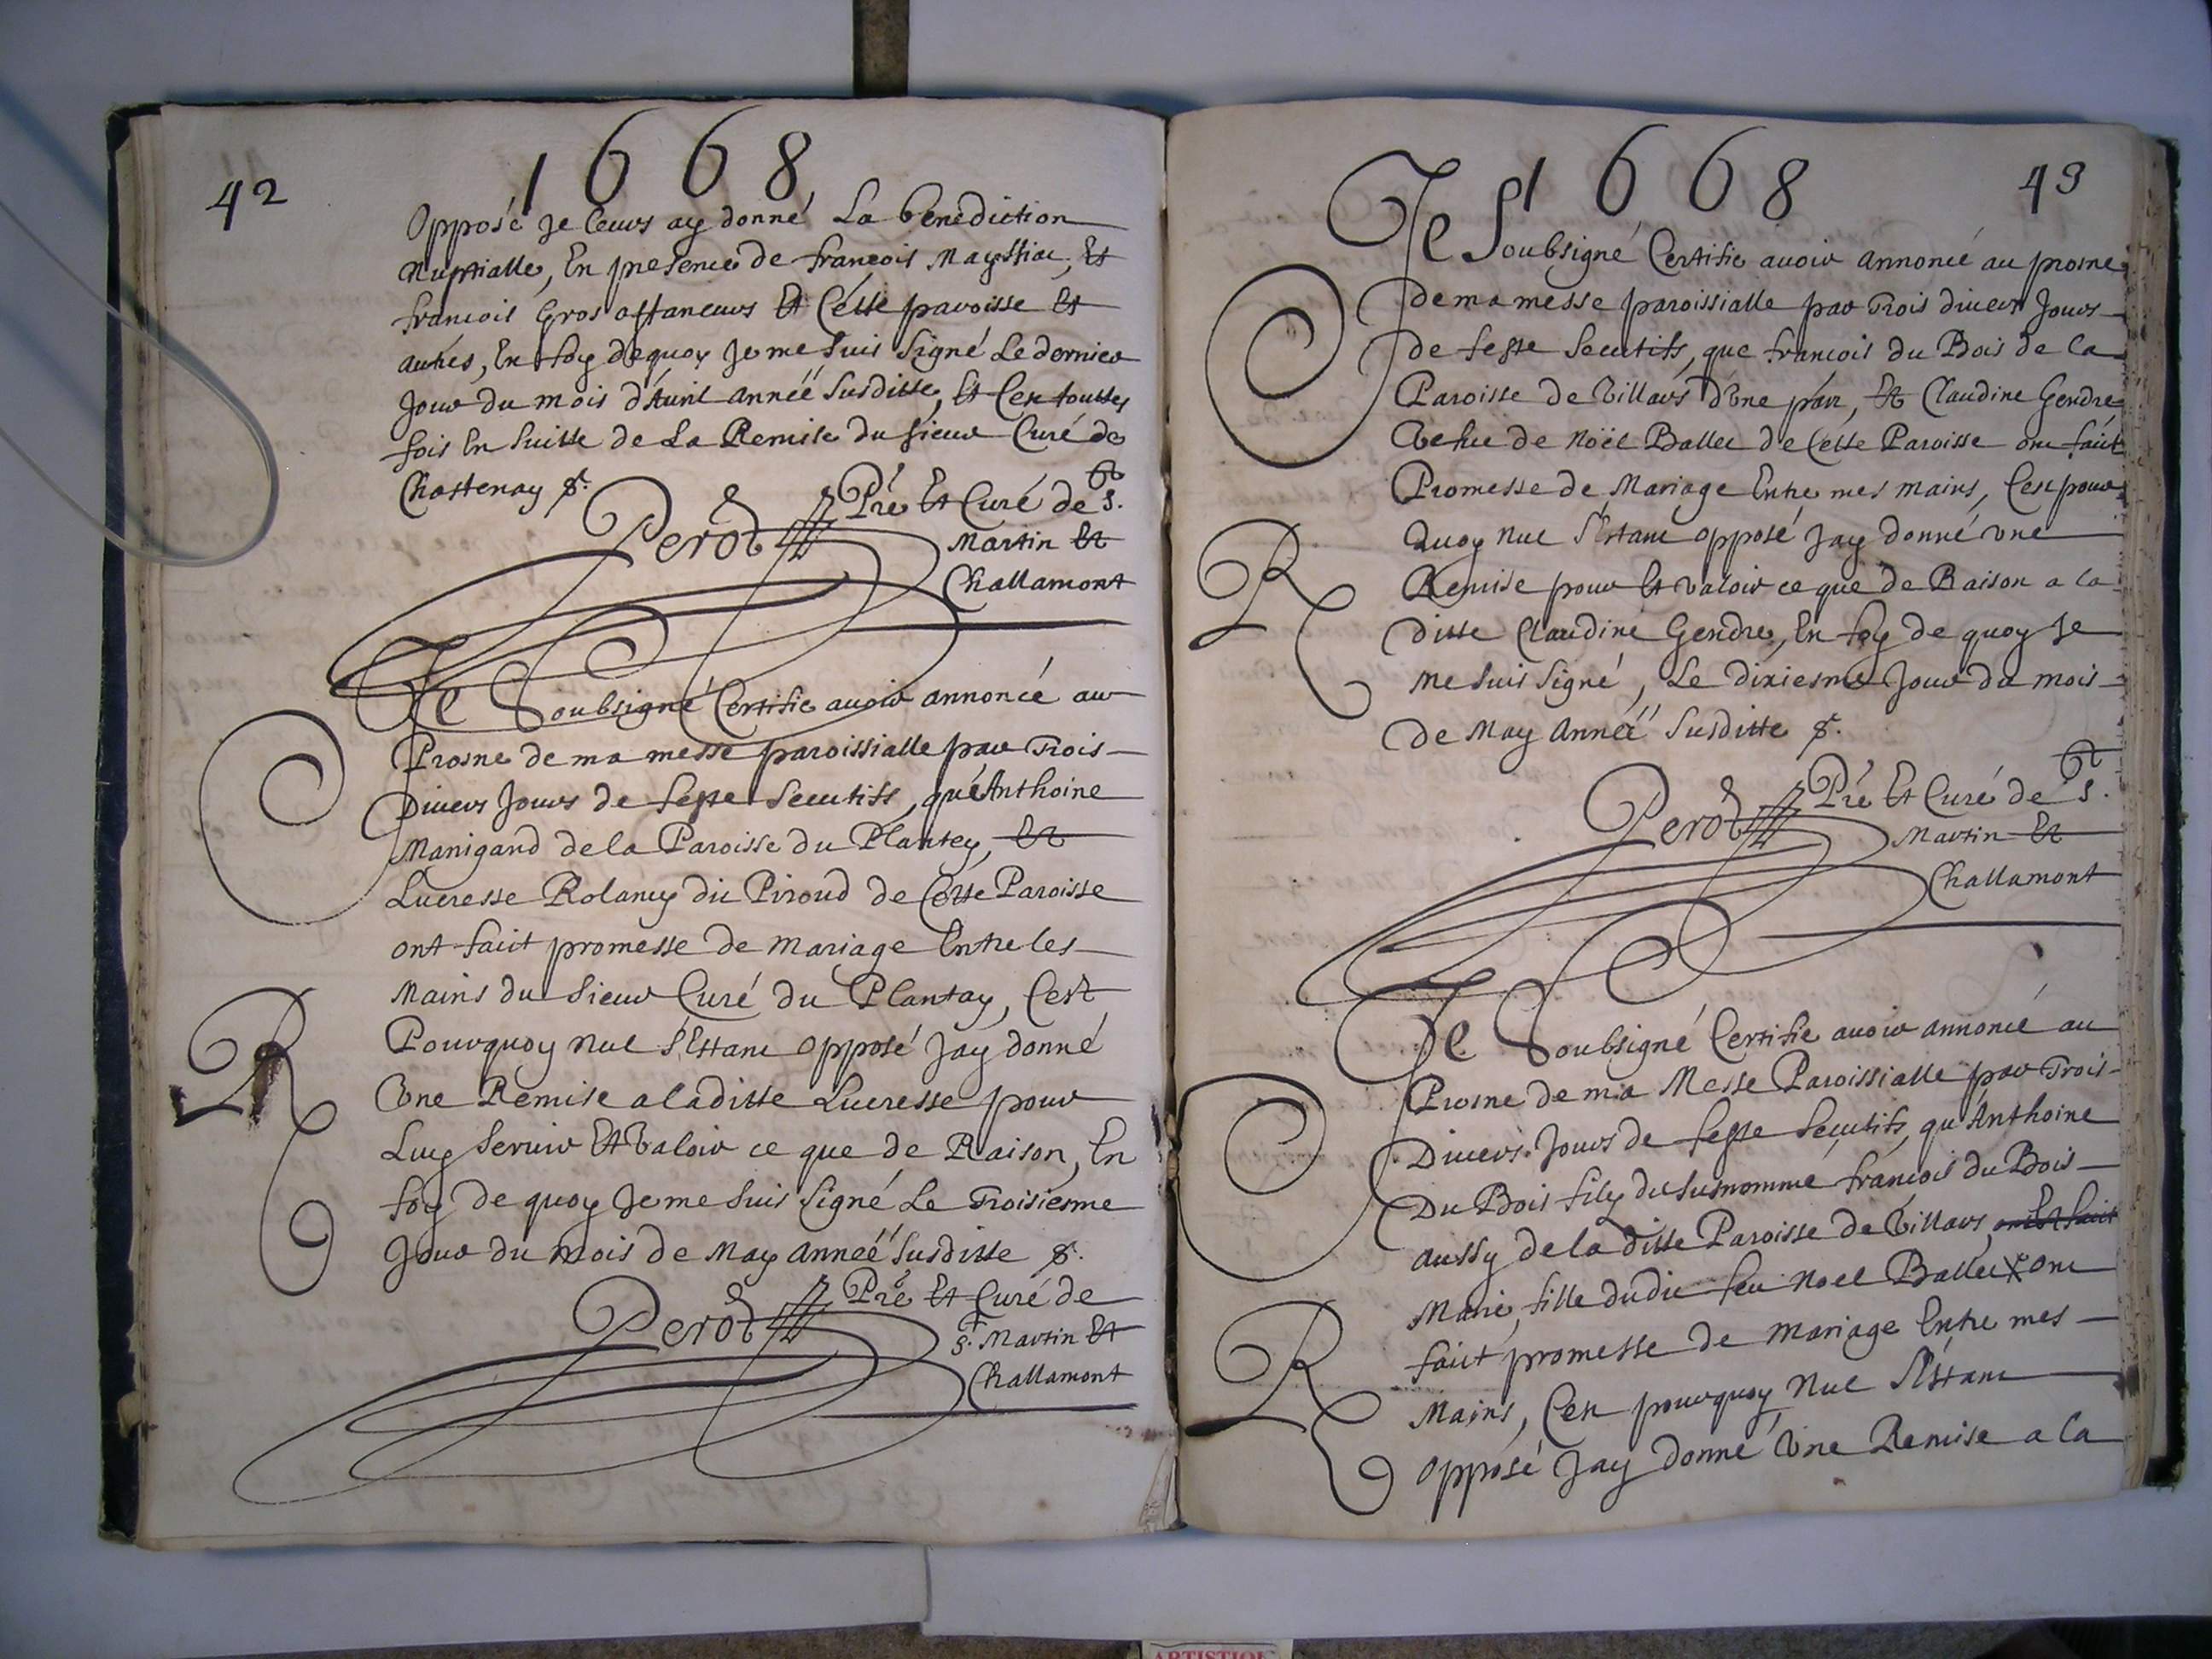 42
1668
Opposé Je leurs ay donné La benediction
Nuptialle, En presence de francois Mayssiac, Et
francois Gros affaneurs Et Cette paroisse Et
autres, En foy dequoy Je me suis signé Le dernier
Jour du mois d'Auril année susditte, Et Cest touttes
fois En suitte de La Remise du sieur Curé de
Chastenay &.
Perod Pre Et Curé de St.
Martin Et
Challamont
Je Soubsigné Certifie auoir annoncé au
Prosne de ma messe paroissialle par Trois
Diuers Jours de feste secutifs, qu'Anthoine
Manigand de la Paroisse du Plantey, Et
Lucresse Rolancy dit Piroud de Cette Paroisse
ont faict promesse de mariage Entre les
Mains du sieur Curé du Plantay, Cest
Pourquoy nul s'Estant opposé Jay donné
Vne Remise a laditte Lucresse pour
Luy seruir Et Valoir ce que de Raison, En
foy de quoy Je me suis signé Le Troisiesme
Jour du mois de May Année susditte &.
Perod Pre Et Curé de
St. Martin Et
Challamont
1668
43
Je Soubsigné Certifie auoir annoncé au prosne
de ma messe paroissialle par Trois diuers Jours
de feste secutifs, que francois du Bois de la
Paroisse de Villars d'Vne part, Et Claudine Gendre
Vefue de Noël Ballet de Cette Paroisse ont faict
Promesse de Mariage Entre mes mains, Cest pour
Quoy nul s'Estant opposé Jay donné Vne
Remise pour Et valoir ce que de Raison a la
ditte Claudine Gendre, En foy de quoy Je
me suis signé, Le dixiesme Jour du mois
de May Année susditte &.
Perod Pre Et Curé de St.
Martin Et
Challamont
Je Soubsigné Certifie auoir annoncé au
Prosne de ma Messe Paroissialle par Trois
Diuers Jours de feste secutifs, qu'Anthoine
Du Bois filz du susnommé francois du Bois
aussy de la ditte Paroisse de Villars, ont Et faict
Marie, fille dudit feu Noel Ballet ont
faict promesse de mariage Entre mes
Mains, Cest pourquoy Nul s'Estant
opposé Jay donné Vne Remise a la
ARTISTIQUE